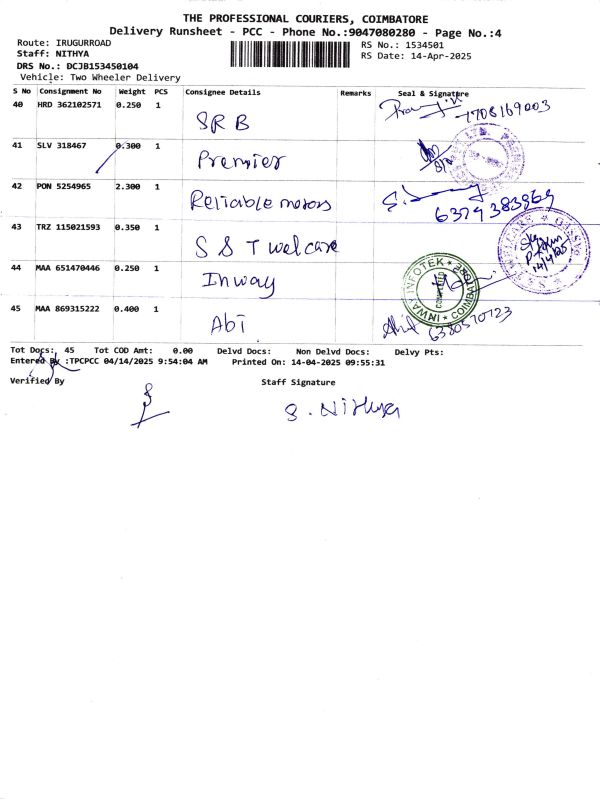 THE PROFESSIONAL COURIERS, COIMBATORE
Delivery Runsheet - PCC - Phone No.:9047080280 - Page No.:4
Route: IRUGURROAD
Staff: NITHYA
DRS No.: DCJB153450104
Vehicle: Two Wheeler Delivery
RS No.: 1534501
RS Date: 14-Apr-2025
S No Consignment No Weight PCS Consignee Details Remarks Seal & Signature
40 HRD 362102571 0.250 1 SRB 7708169003
41 SLV 318467 0.300 1 Premier
42 PON 5254965 2.300 1 Reliable motors 6379383869
43 TRZ 115021593 0.350 1 S S T welcare 14/4/25
44 MAA 651470446 0.250 1 Inway INWAY INFOTEK COIMBATORE
45 MAA 869315222 0.400 1 Abi Abi 6380570723
Tot Docs: 45 Tot COD Amt: 0.00 Delvd Docs: Non Delvd Docs: Delvy Pts:
Entered By :TPCPCC 04/14/2025 9:54:04 AM Printed On: 14-04-2025 09:55:31
Verified By Staff Signature
S. Nithya